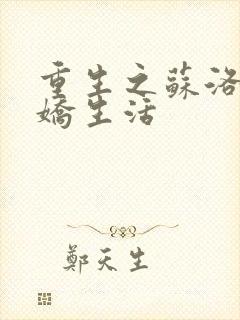 重生之蘇洛
嬌生活
鄭天生